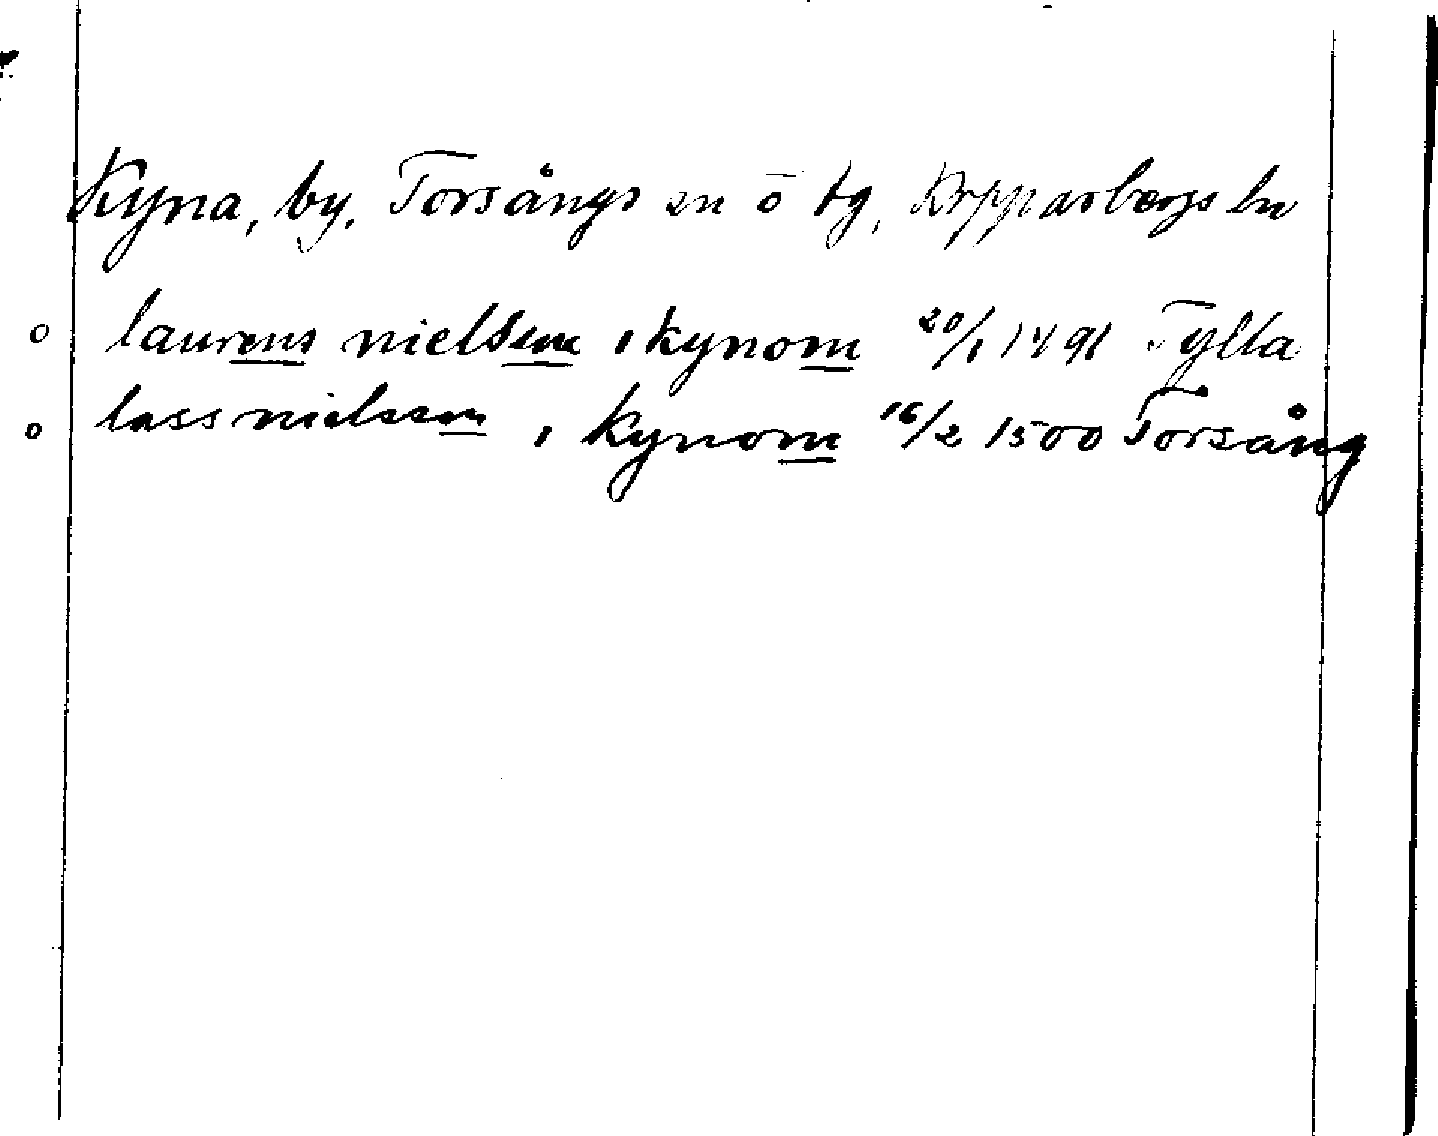 Kyna, by. Torsångs sn ö tg, Kopparbergs ln
o laurens nielsson i kynom 20/1 1491 Tylla
o lass nielsson i kynom 16/2 1500 Torsång